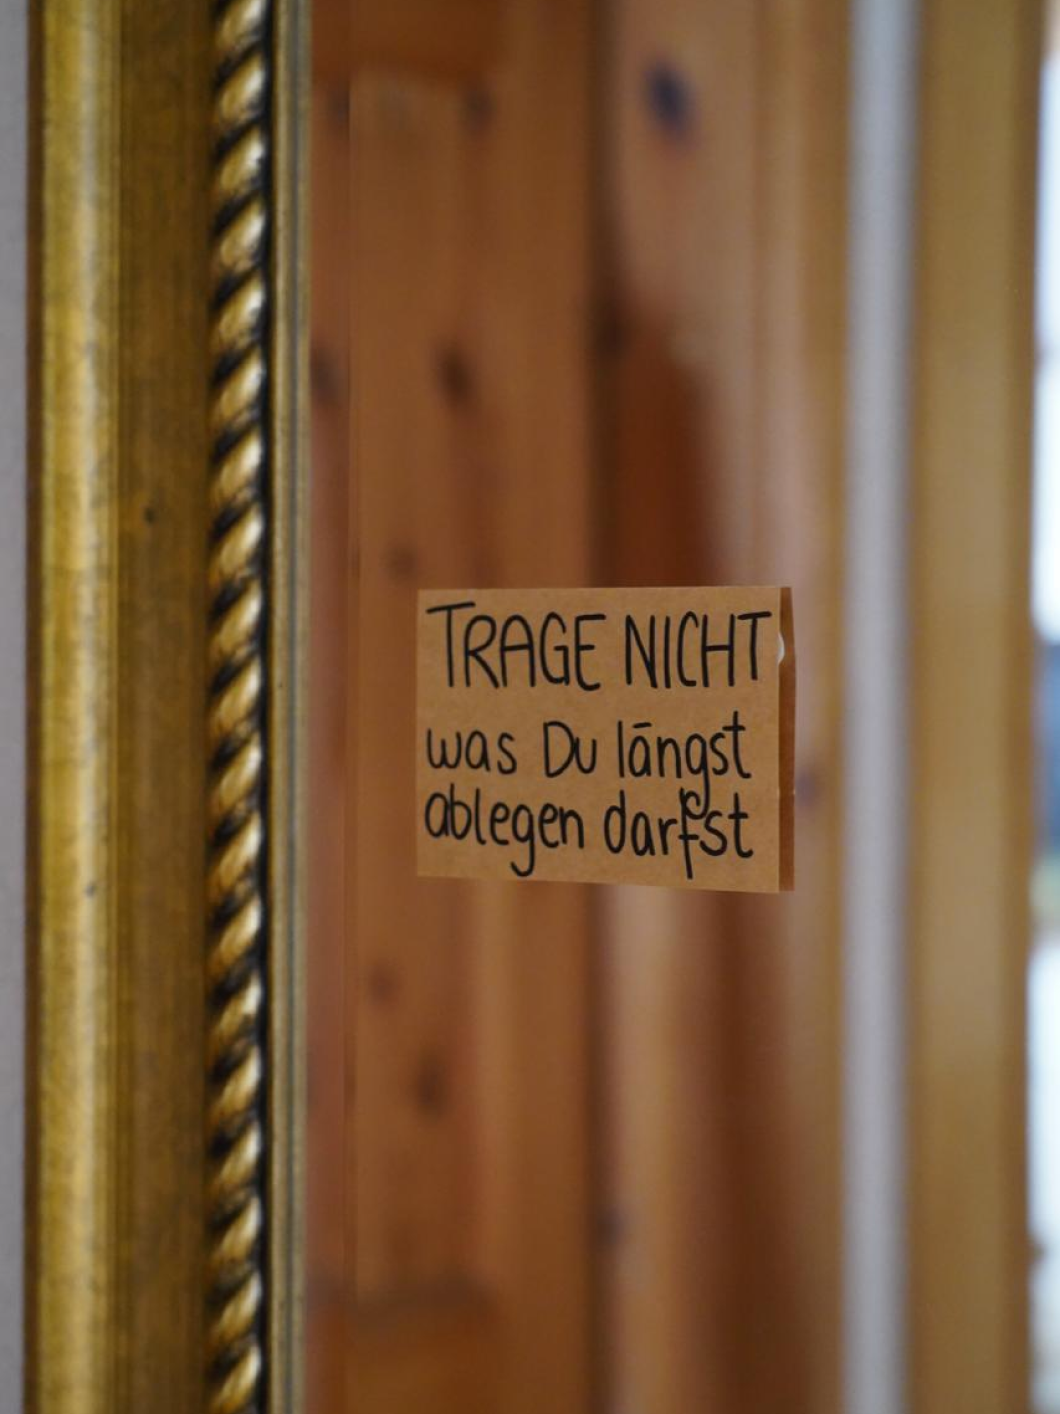 TRAGE NICHT
was Du längst
ablegen darfst